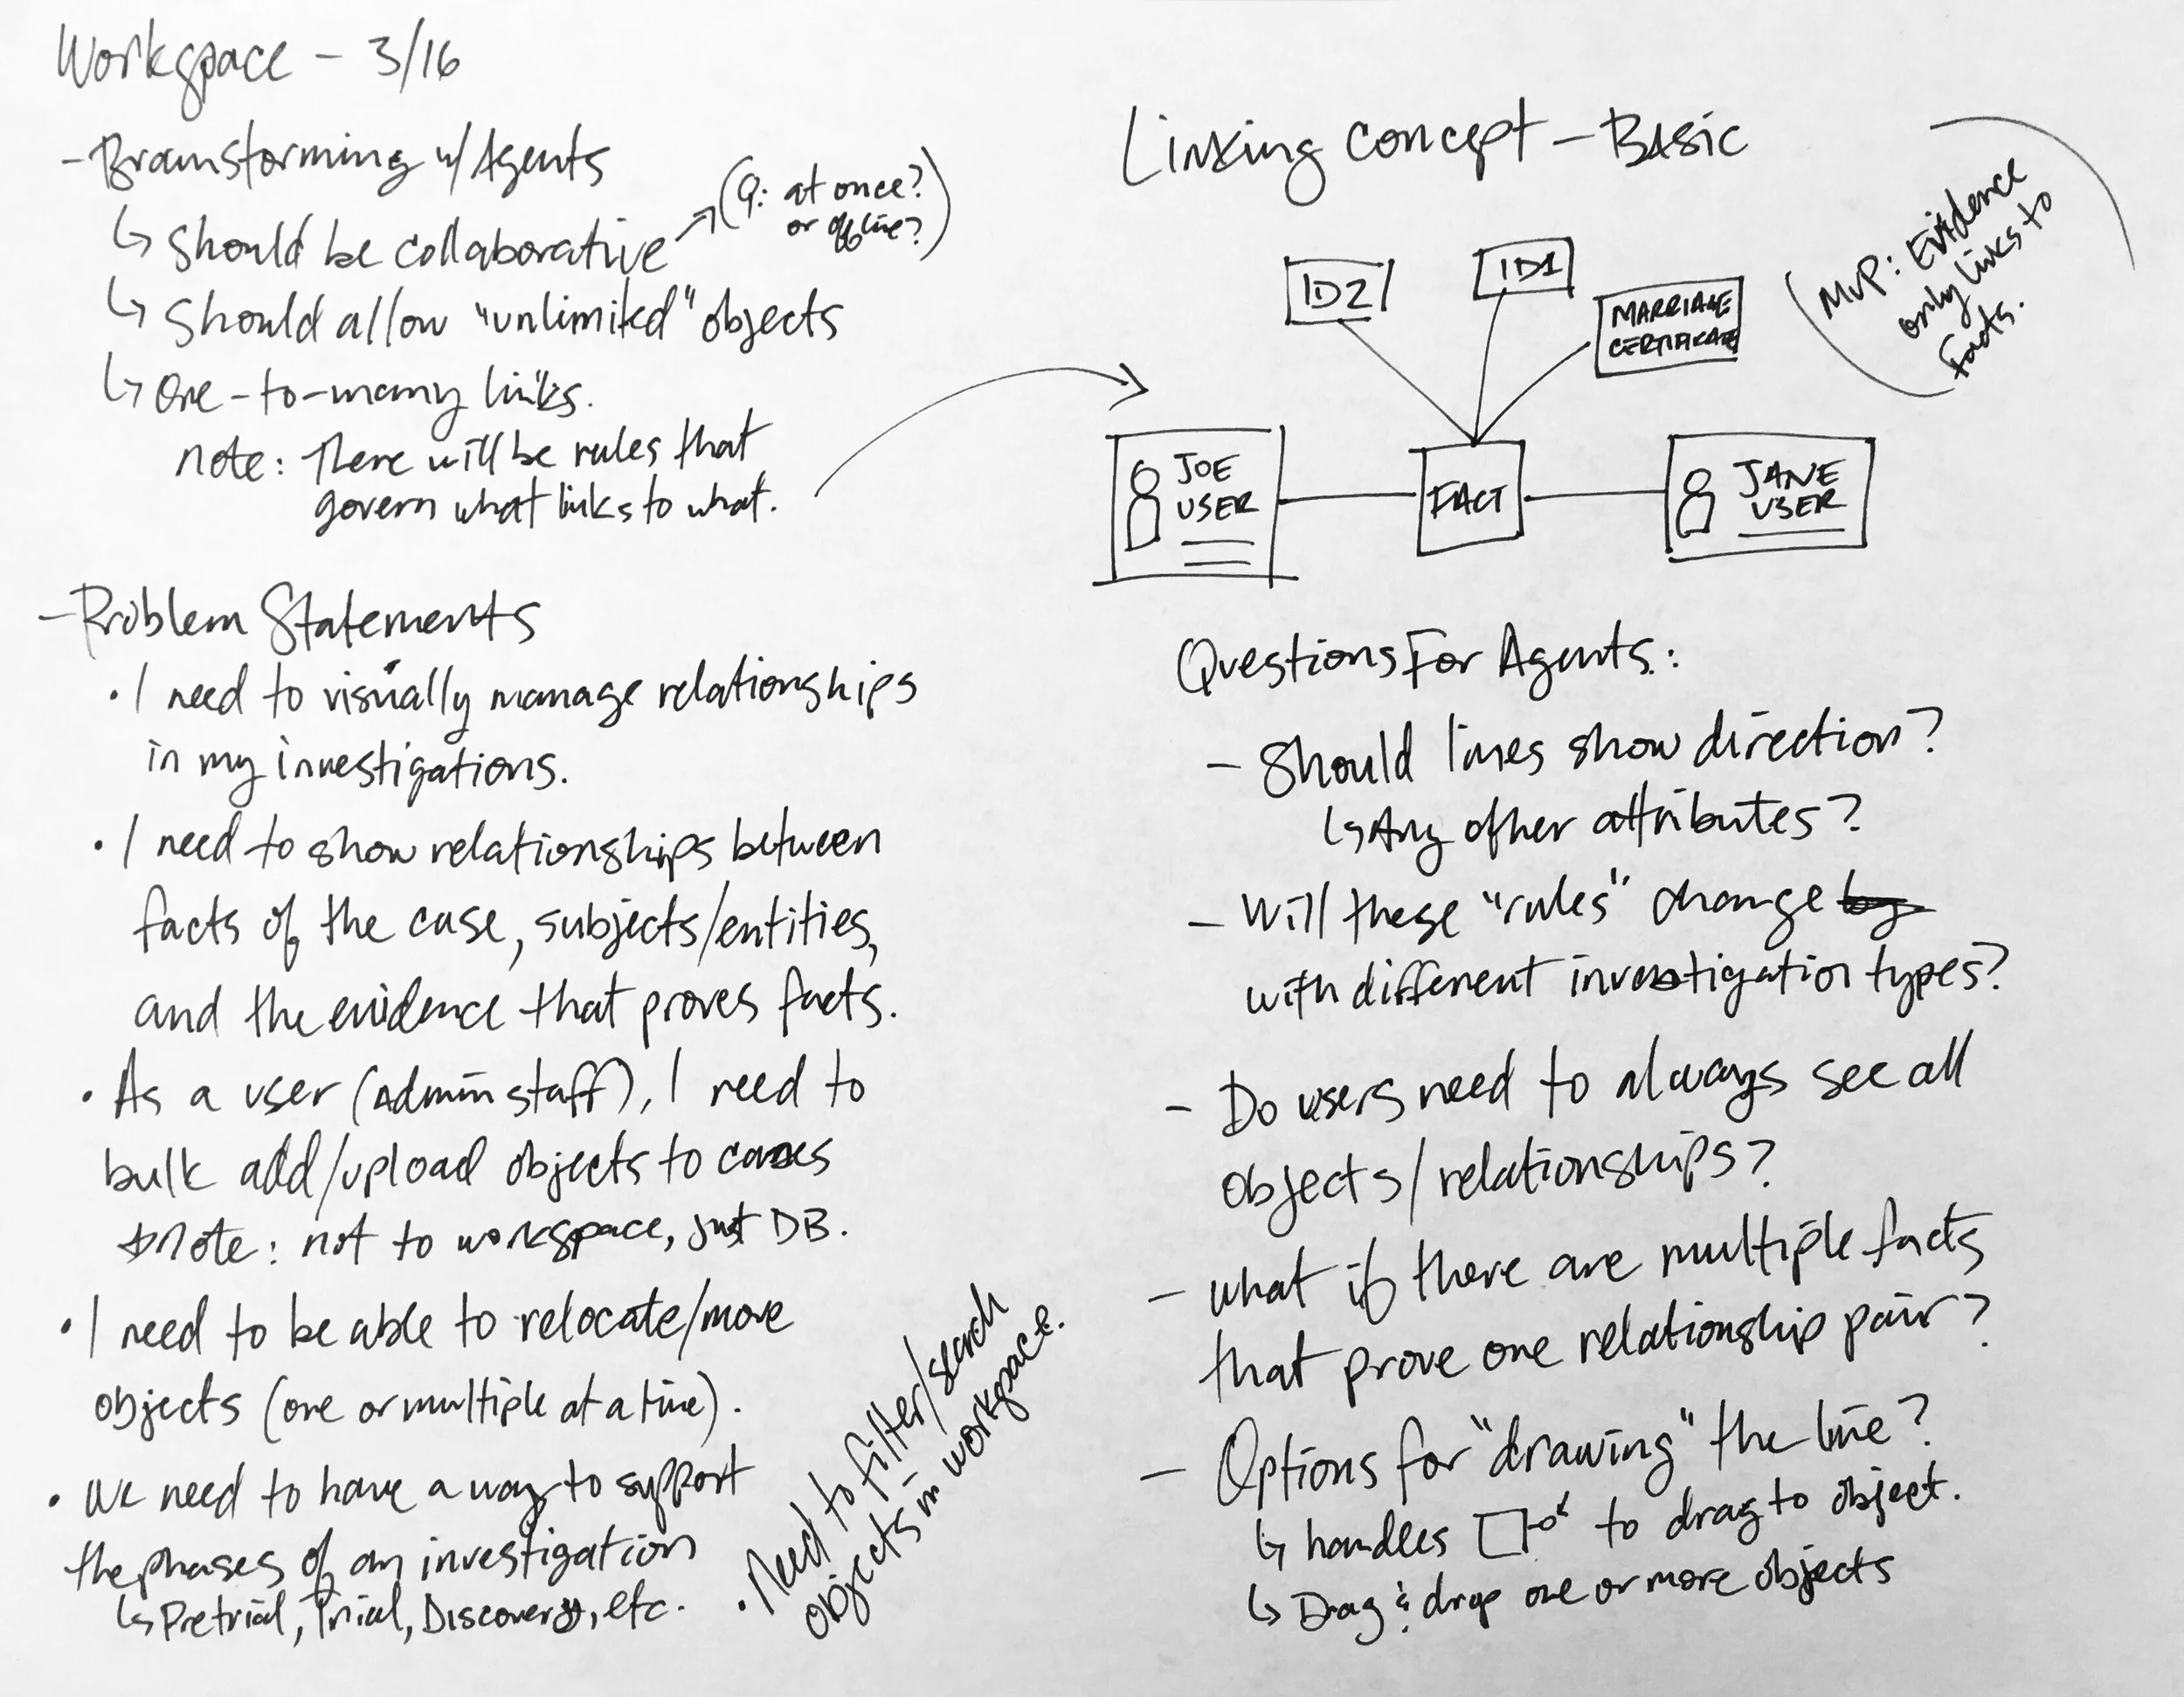 Workspace - 3/16
- Brainstorming w/ Agents
↳ Should be collaborative
(Q: at once?
or offline?)
↳ Should allow "unlimited" objects
↳ One-to-many links.
note: There will be rules that
govern what links to what.
- Problem Statements
• I need to visually manage relationships
in my investigations.
• I need to show relationships between
facts of the case, subjects/entities,
and the evidence that proves facts.
• As a user (Admin staff), I need to
bulk add/upload objects to cases
*Note: not to workspace, just DB.
• I need to be able to relocate/move
objects (one or multiple at a time).
• We need to have a way to support
the phases of an investigation
↳ Pretrial, Trial, Discovery, etc.
• Need to filter/search
objects in workspace.
Linking Concept - Basic
MVP: Evidence
only links to
facts.
ID2
ID1
MARRIAGE
CERTIFICATE
JOE
USER
FACT
JANE
USER
Questions For Agents:
- Should lines show direction?
↳ Any other attributes?
- Will these "rules" change by
with different investigation types?
- Do users need to always see all
objects/relationships?
- what if there are multiple facts
that prove one relationship pair?
- Options for "drawing" the line?
↳ handles to drag to object.
↳ Drag & drop one or more objects